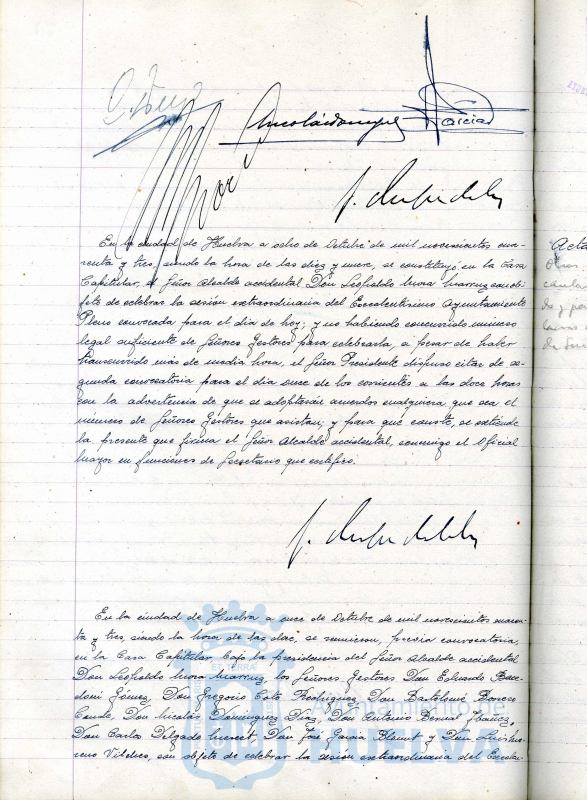 García
En la ciudad de Huelva a ocho de Octubre de mil novecientos cua-
renta y tres, siendo la hora de las diez y nueve, se constituyó en la Casa
Capitular, el Señor Alcalde accidental Don Leopoldo Mora Marruz con ob-
jeto de celebrar la sesión extraordinaria del Excelentísimo Ayuntamiento
Pleno convocada para el día de hoy; y no habiendo concurrido número
legal suficiente de Señores Gestores para celebrarla, a pesar de haber
transcurrido más de media hora, el Señor Presidente dispuso citar de se-
gunda convocatoria para el día once de los corrientes a las doce horas
con la advertencia de que se adoptarán acuerdos cualquiera que sea el
número de Señores Gestores que asistan; y para que conste, se extiende
la presente que firma el Señor Alcalde accidental, conmigo el Oficial
Mayor en funciones de Secretario que certifico.
En la ciudad de Huelva a once de Octubre de mil novecientos cuaren-
ta y tres, siendo la hora de las doce, se reunieron, previa convocatoria,
en la Casa Capitular bajo la presidencia del Señor Alcalde accidental
Don Leopoldo Mora Marruz, los Señores Gestores Don Eduardo
Gómez, Don Gregorio Cots Rodríguez, Don Bartolomé Borrero
Conde, Don Nicolás Domínguez Díaz, Don Antonio Bernal Ibáñez,
Don Carlos Delgado Don José García y Don Luis Mo-
reno Vilches, con objeto de celebrar la sesión extraordinaria del Excelen-
Acta
Ayuntamiento de
HUELVA